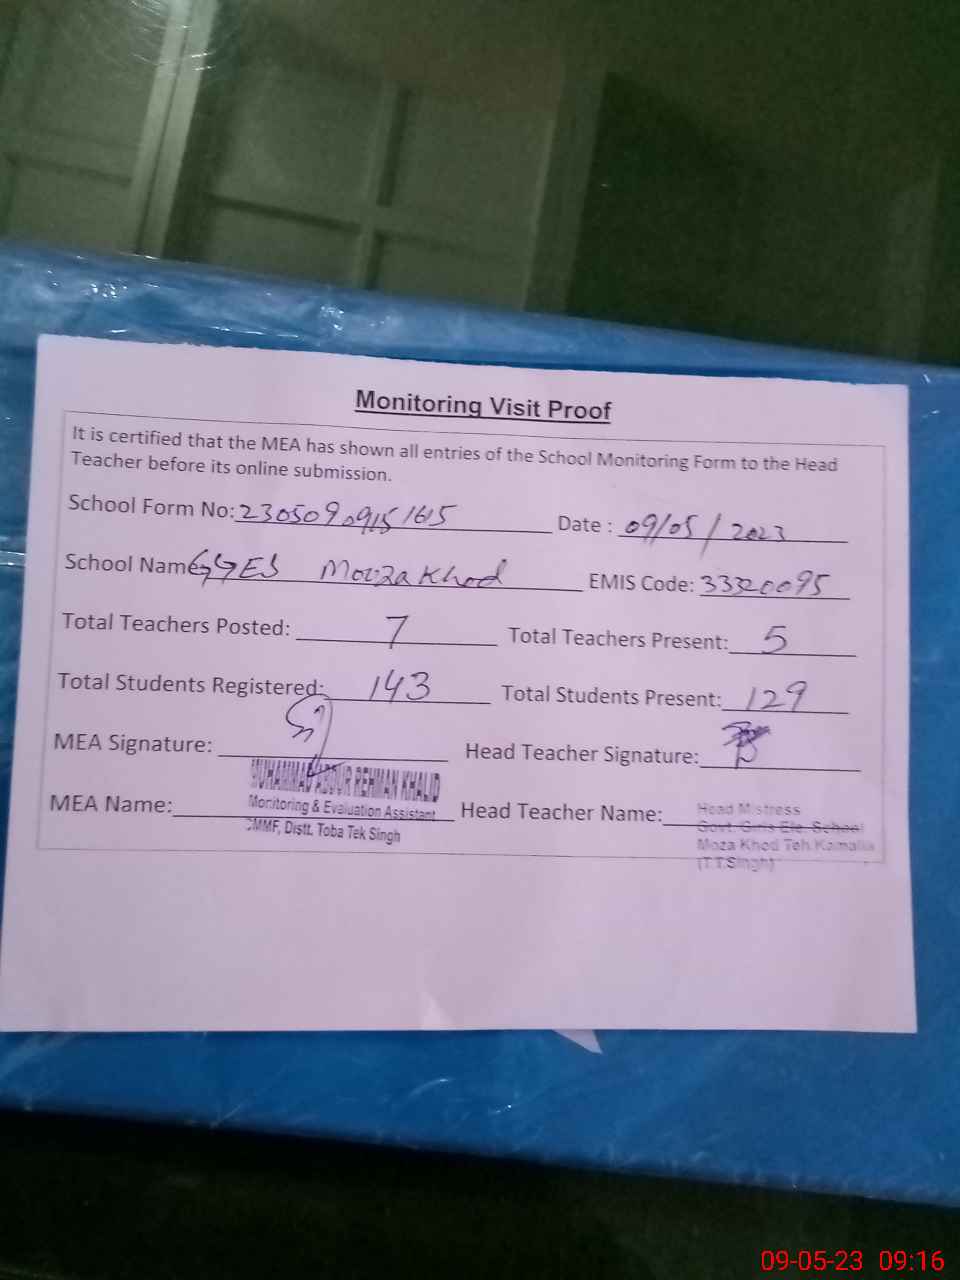 Monitoring Visit Proof
It is certified that the MEA has shown all entries of the School Monitoring Form to the Head
Teacher before its online submission.
School Form No: 23050909151615 Date : 09/05/2023
School Name GGES Mouza Khod EMIS Code: 33320095
Total Teachers Posted: 7 Total Teachers Present: 5
Total Students Registered: 143 Total Students Present: 129
MEA Signature: Head Teacher Signature:
MUHAMMAD ABDUR REHMAN KHALID
MEA Name: Monitoring & Evaluation Assistant Head Teacher Name: Head Mistress
CMMF, Distt. Toba Tek Singh Govt. Girls Ele. School
Moza Khod Teh Kamalia
(T.T.Singh)
09-05-23 09:16